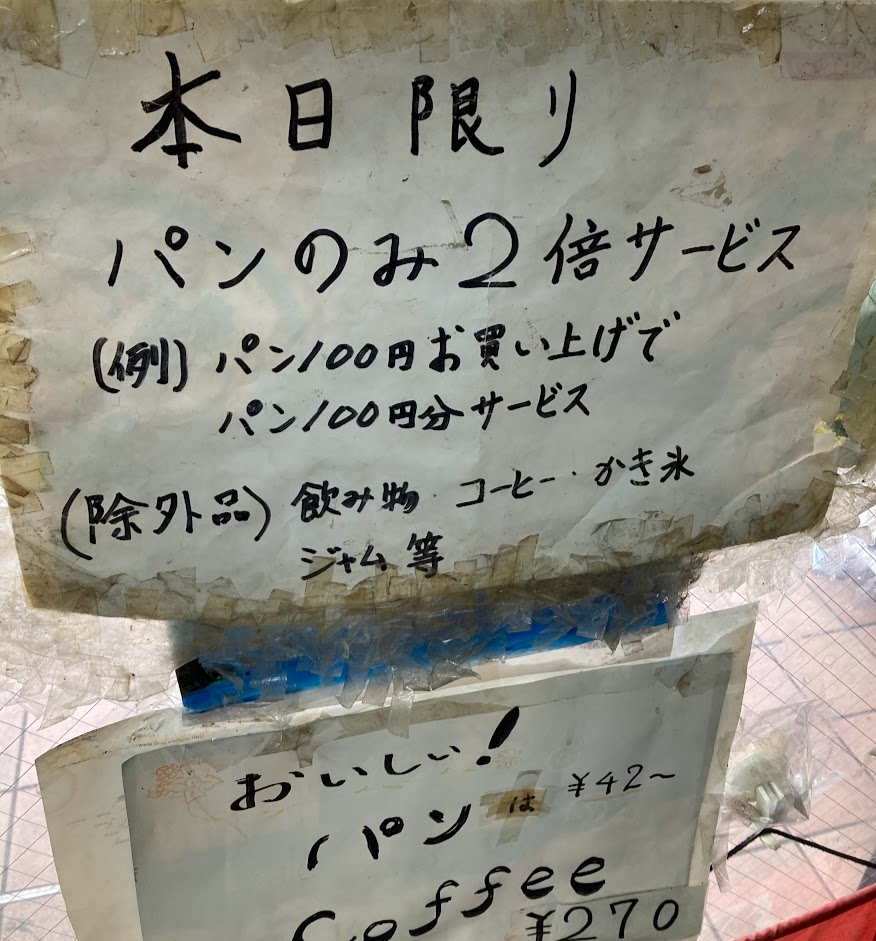 本日限り
パンのみ2倍サービス
(例) パン100円お買い上げで
パン100円分サービス
(除外品) 飲み物・コーヒー・かき氷
ジャム等
おいしい!
パンは ¥42〜
Coffee
¥270